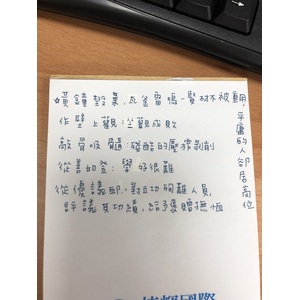 黃鐘毀棄,瓦釜雷鳴:賢材不被重用,
平庸的人卻居高位
作壁上觀:坐觀成敗
敲骨吸髓:殘酷的壓榨剝削
從善如登:學好很難
從優議卹:對因功殉難人員,
評議其功績,給予褒贈撫恤
國際